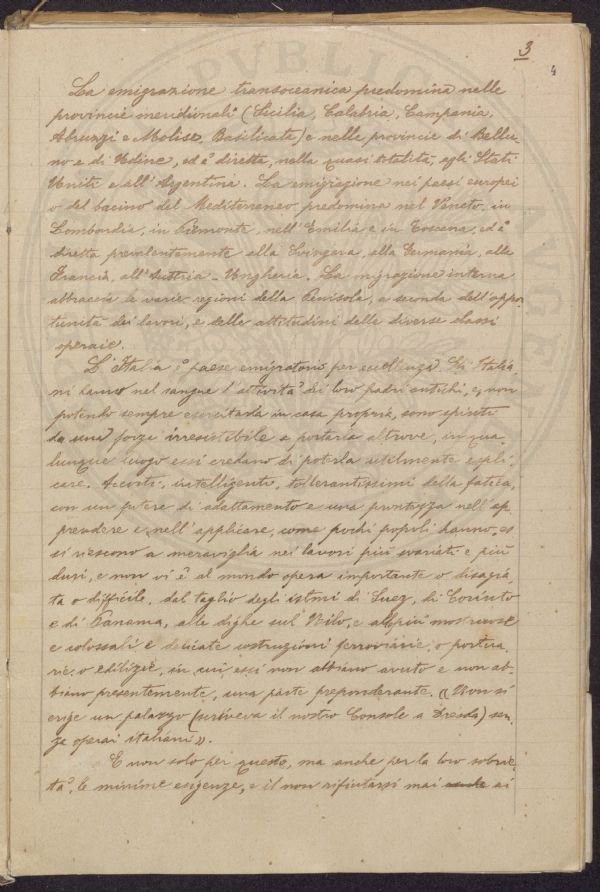 3
4
La emigrazione transoceanica predomina nelle
provincie meridionali (Sicilia, Calabria, Campania,
Abruzzi e Molise, Basilicate) e nelle provincie di Bellu-
no e di Udine, ed è diretta, nella quasi totalità, agli Stati
Uniti e all'Argentina. La emigrazione nei paesi europei
o del bacino del Mediterraneo predomina nel Veneto, in
Lombardia, in Piemonte, nell'Emilia e in Toscana, ed è
diretta prevalentemente alla Svizzera, alla Germania, alla
Francia, all'Austria-Ungheria. La migrazione interna
abbraccia le varie regioni della Penisola, a seconda dell'oppor-
tunità dei lavori, e delle attitudini delle diverse classi
operaie.
L'Italia è paese emigratorio per eccellenza. Gl'Italia-
ni hanno nel sangue l'attività dei loro padri antichi, e, non
potendo sempre esercitarla in casa propria, sono spinti
da una forza irresistibile a portarla altrove, in qua-
lunque luogo essi credano di poterla utilmente espli-
care. Accorti, intelligenti, tollerantissimi della fatica,
con un potere di adattamento e una prontezza nell'ap-
prendere e nell'applicare, come pochi popoli hanno, es-
si riescono a meraviglia nei lavori più svariati e più
duri, e non vi è al mondo opera importante o disagia-
ta o difficile, dal taglio degli istmi di Suez, di Corinto
e di Panama, alle dighe sul Nilo, e alle più mostruose
e colossali e delicate costruzioni ferroviarie, o portua-
rie, o edilizie, in cui essi non abbiano avuto e non ab-
biano presentemente, una parte preponderante. «Non si
erige un palazzo (scriveva il nostro Console a Dresda) sen-
za operai italiani».
E non solo per questo, ma anche per la loro sobrie-
tà, le minime esigenze, e il non rifiutarsi mai ai